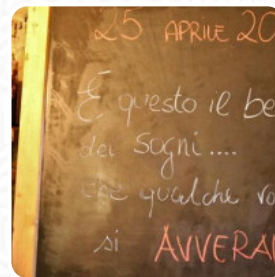 25 APRILE 20
É questo il be
dei sogni....
che qualche vo
si AVVERA